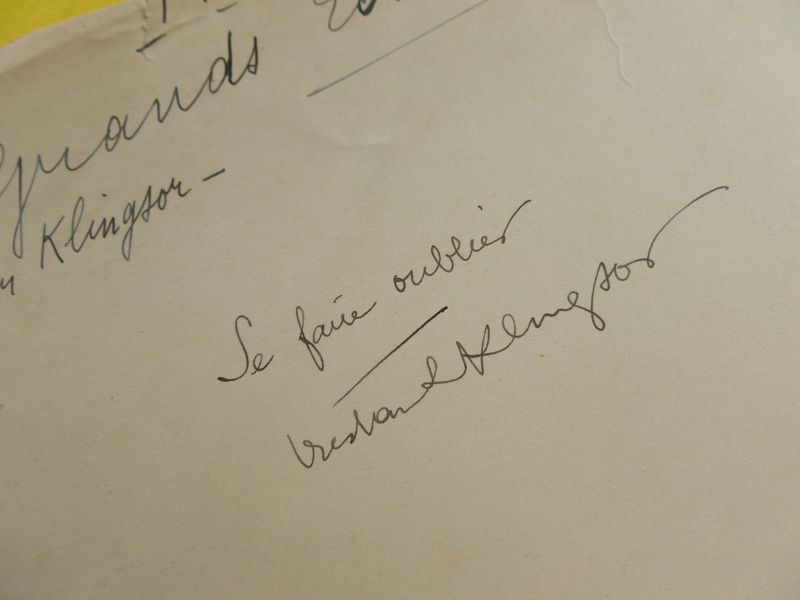 Grands
Klingsor –
Se faire oublier
Tristan Klingsor